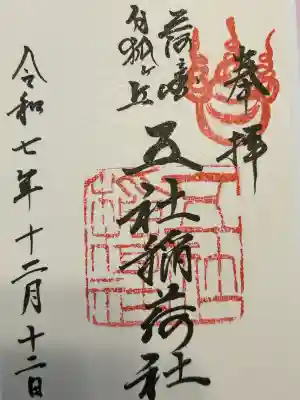 奉拝
白狐ヶ丘
五社稲荷社
令和七年十二月十二日